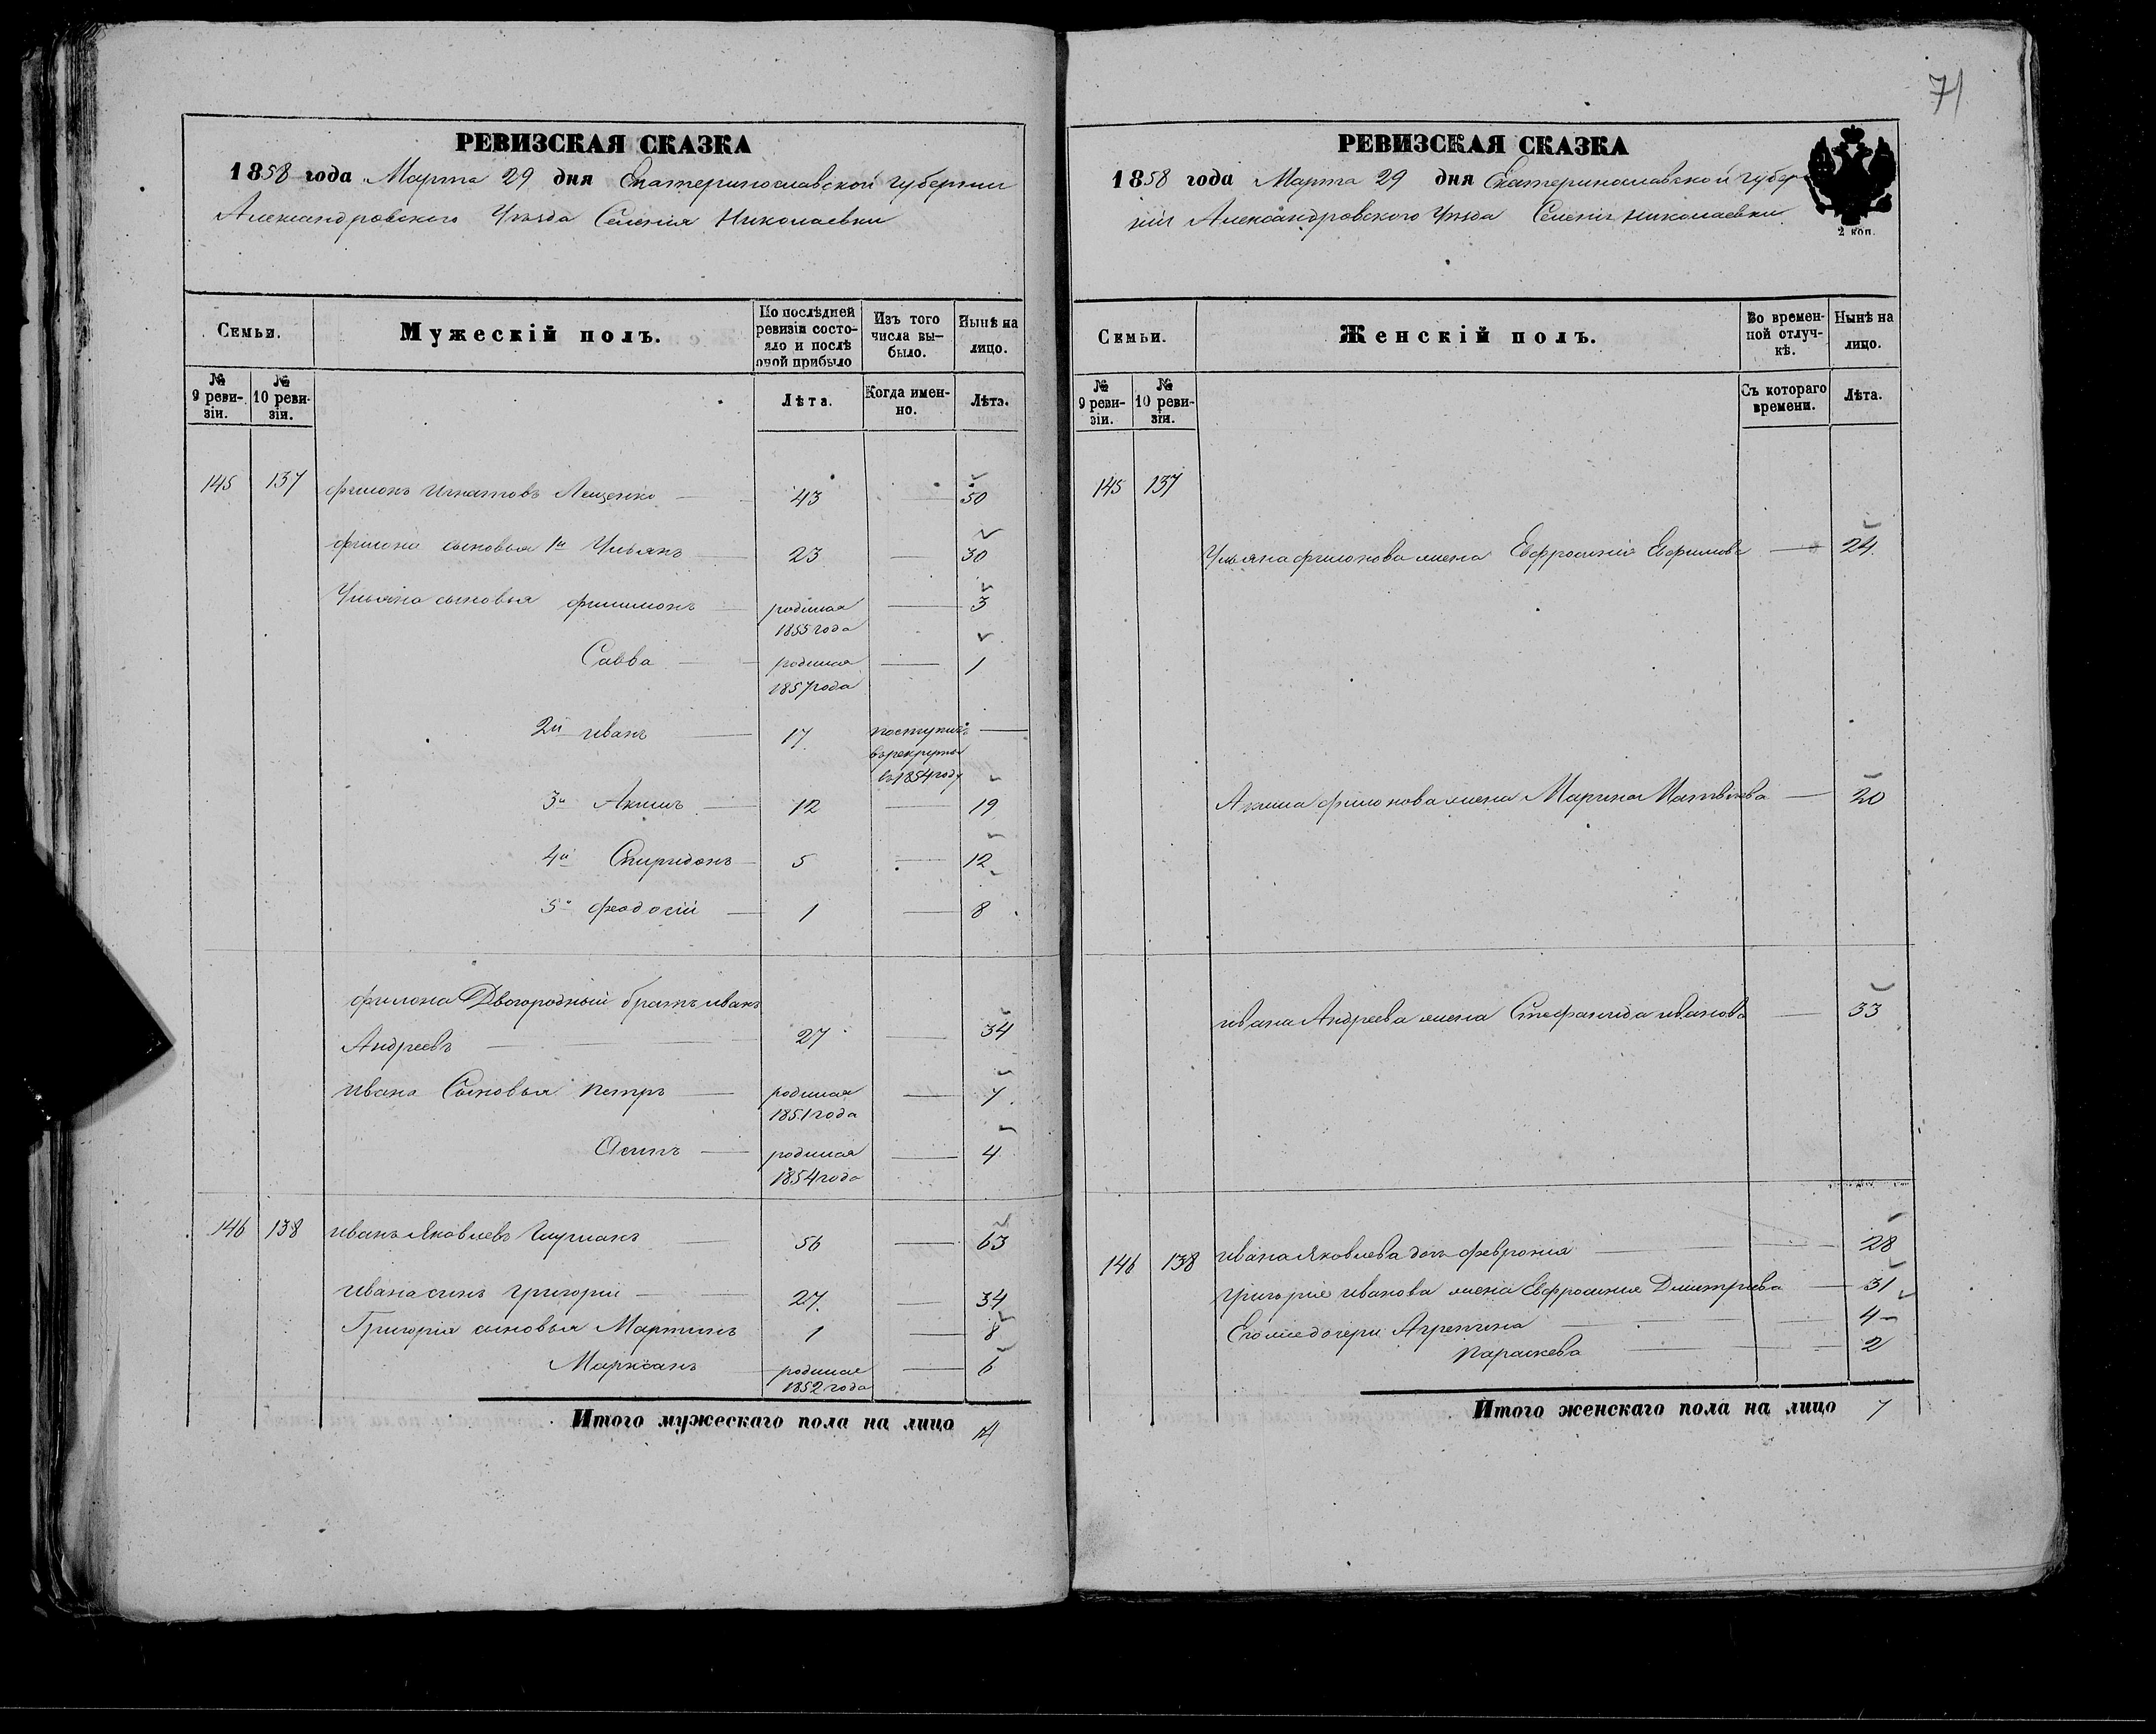 71
РЕВИЗСКАЯ СКАЗКА
1858 года Марта 29 дня Екатеринославской губернии
Александровского Уезда Селения Николаевки
Семьи.
Мужескій полъ.
По послѣдней ревизіи состояло и послѣ оной прибыло
Изъ того числа выбыло.
Нынѣ на лицо.
№ 9 ревизіи.
№ 10 ревизіи.
Лѣта.
Когда именно.
Лѣта.
145 137 Филонъ Игнатовъ Лещенко 43 50
Филона сыновья 1й Ульянъ 23 30
Ульяна сыновья Филимонъ родился 1855 года 3
Савва родился 1857 года 1
2й Иванъ 17 поступилъ в рекруты въ 1854 году
3й Акимъ 12 19
4й Спиридонъ 5 12
5й Феодосій 1 8
Филона Двогородный братъ Иванъ
Андреевъ 27 34
Ивана Сыновья Петръ родился 1851 года 7
Осипъ родился 1854 года 4
146 138 Иванъ Яковлевъ 56 63
Ивана сынъ Григорій 27 34
Григорія сыновья Мартинъ 1 8
родился 1852 года 6
Итого мужескаго пола на лицо 14
РЕВИЗСКАЯ СКАЗКА
2 коп.
1858 года Марта 29 дня Екатеринославской губер
ніи Александровского Уезда Селенія Николаевки
Семьи.
Женскій полъ.
Во временной отлучкѣ.
Нынѣ на лицо.
№ 9 ревизіи.
№ 10 ревизіи.
Съ котораго времени.
Лѣта.
145 137
Ульяна Филонова жена Евфросинія Евфимова 24
Акима Филонова жена Марина Матвѣева 20
Ивана Андреева жена Стефанида Иванова 33
146 138 Ивана Яковлева дочь Феврония 28
Григорія Иванова жена Евфросинія Дмитріева 31
Его же дочери Агрепина 4
Параскева 2
Итого женскаго пола на лицо 7